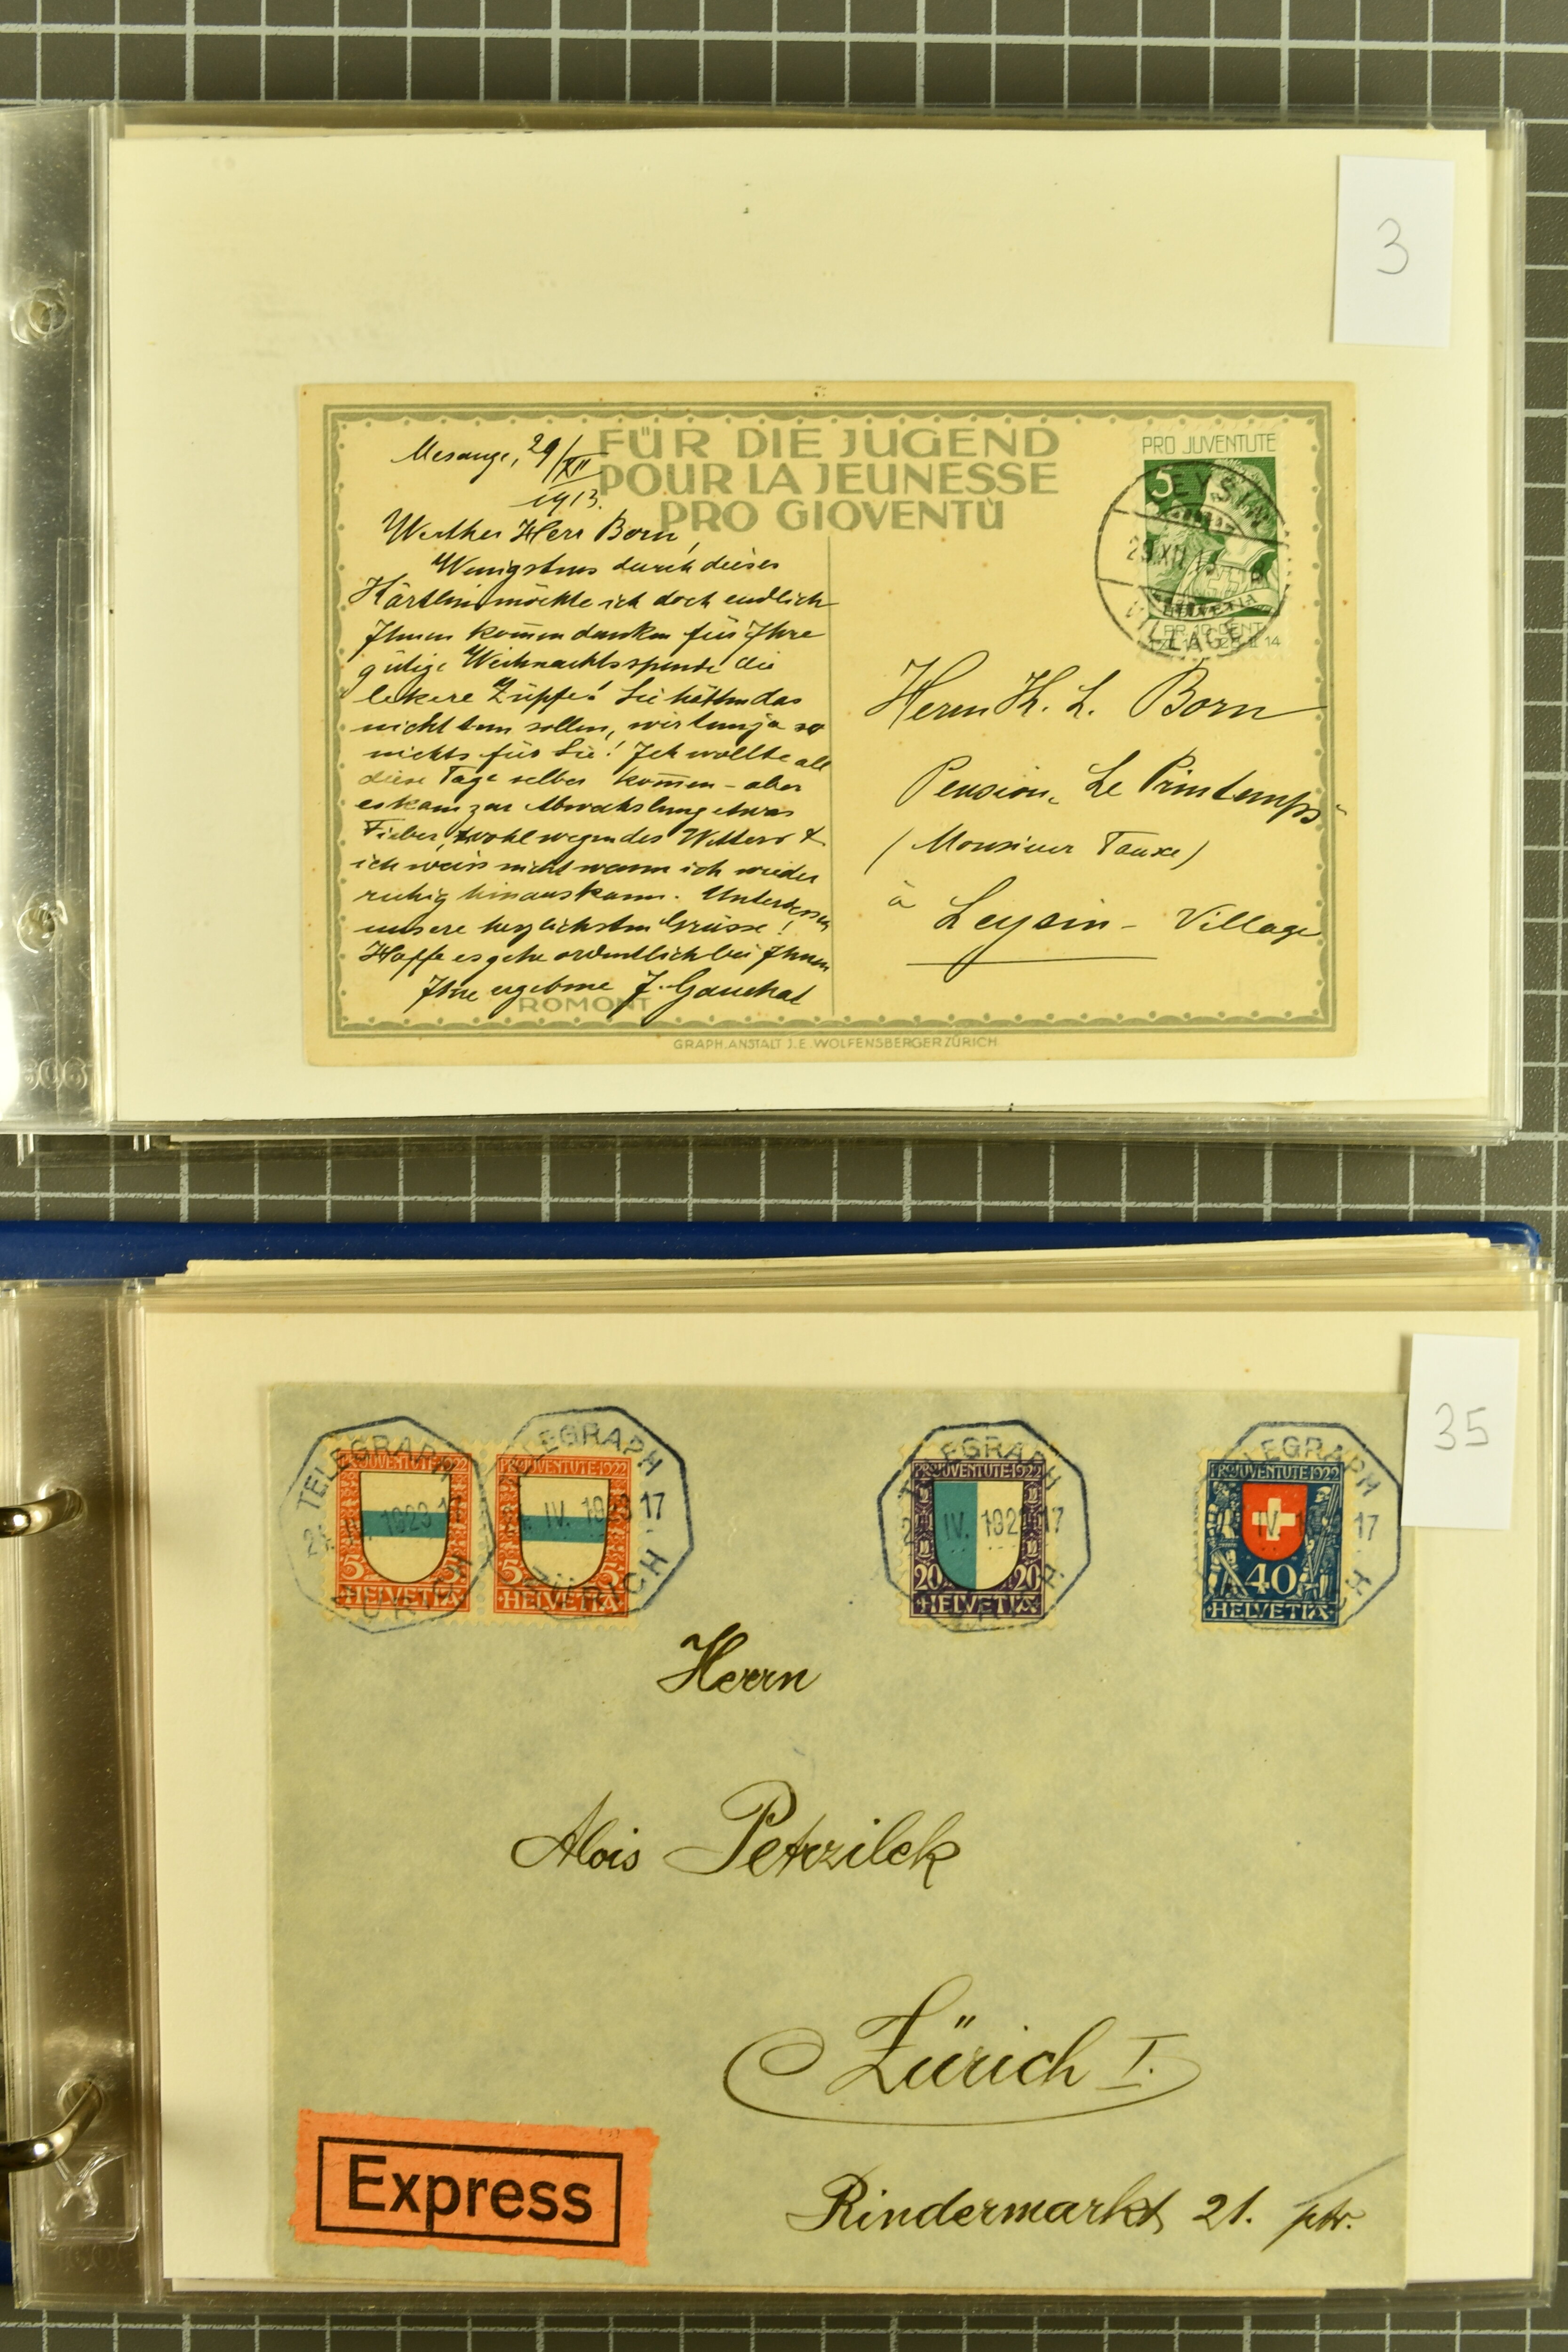 3
FÜR DIE JUGEND
POUR LA JEUNESSE
PRO GIOVENTÙ
PRO JUVENTUTE
5
LEYSIN
29.XII.13
VILLAGE
HELVETIA
Mesange, 29/XII
1913.
Werther Herr Born,
Wenigstens durch dieses
Kärtlein möchte ich doch endlich
Ihnen kom̄en danken für Ihre
gütige Weihnachtsspende die
lekere Züpfe! Sie hätten das
nicht tun sollen, wir tun ja so
nichts für Sie! Ich wollte all
diese Tage selber kom̄en – aber
es kam zur Abwechslung etwas
Fieber, wohl wegen des Wetters &
ich weiss nicht wann ich wieder
ruhig hinaus kann. Unterdessen
unsere herzlichsten Grüsse!
Hoffe es gehe ordentlich bei Ihnen
Ihre ergebene J. Gauchat
ROMONT
Herrn H. L. Born
Pension Le Printemps
(Monsieur Tauxe)
à Leysin - Village
GRAPH. ANSTALT J.E. WOLFENSBERGER ZÜRICH
35
TELEGRAPH
IV. 1923 17
ZÜRICH
PRO JUVENTUTE 1922
5 5
HELVETIA
TELEGRAPH
IV. 1923 17
ZÜRICH
PRO JUVENTUTE 1922
5 5
HELVETIA
TELEGRAPH
IV. 192 17
PRO JUVENTUTE 1922
20 20
HELVETIA
TELEGRAPH
IV. 17
PRO JUVENTUTE 1922
40
HELVETIA
Herrn
Alois Petrzilek
Zürich I.
Rindermarkt 21. ptr.
Express